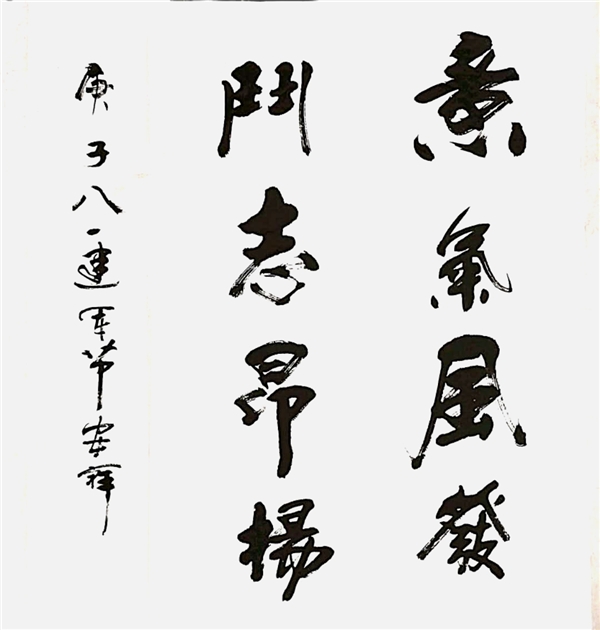 意氣風發
鬥志昂揚
庚子八一建军节安祥